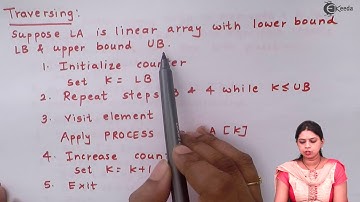 Traversing:
Suppose LA is linear array with lower bound
LB & upper bound UB.
1. Initialize counter
set K = LB
2. Repeat steps & 4 while K ≤ UB
3. Visit element
Apply PROCESS A [K]
4. Increase coun
set K = K+1
5. Exit
Ekeeda